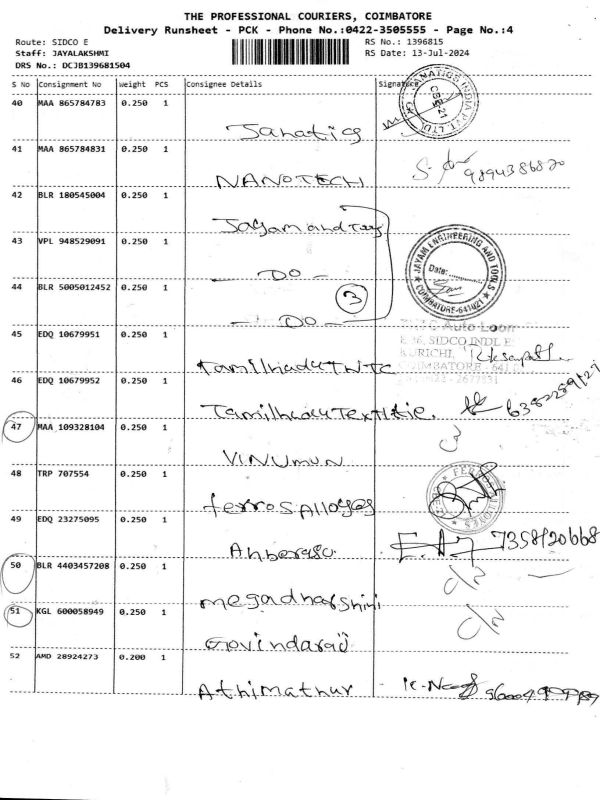 THE PROFESSIONAL COURIERS, COIMBATORE
Delivery Runsheet - PCK - Phone No.:0422-3505555 - Page No.:4
Route: SIDCO E
RS No.: 1396815
Staff: JAYALAKSHMI
RS Date: 13-Jul-2024
DRS No.: DCJB139681504
S No Consignment No Weight PCS Consignee Details Signature
40 MAA 865784783 0.250 1
Janatics
JANATICS INDIA PVT LTD
41 MAA 865784831 0.250 1
NANOTECH
9894386820
42 BLR 180545004 0.250 1
Jayam and Toos
43 VPL 948529091 0.250 1
- DO -
JAYAM ENGINEERING AND TOOLS
Date:
COIMBATORE-641021
44 BLR 5005012452 0.250 1
3
- DO -
45 EDQ 10679951 0.250 1
Auto Loom
SIDCO INDL E
KURICHI,
COIMBATORE - 641
46 EDQ 10679952 0.250 1
47 MAA 109328104 0.250 1
VINUMUN
48 TRP 707554 0.250 1
ferros Alloyes
49 EDQ 23275095 0.250 1
Anbarasu
50 BLR 4403457208 0.250 1
megadharshini
51 KGL 600058949 0.250 1
Govindaraj
52 AMD 28924273 0.200 1
Athimathur